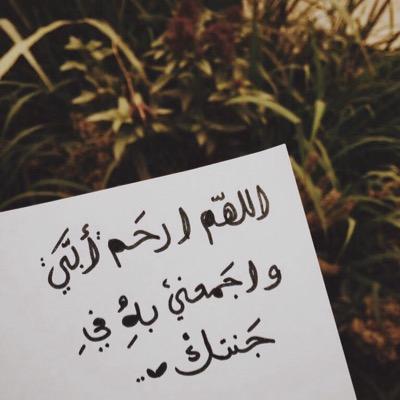 اللهّم ارحَم :أبَّي:
واجَمعنيْ بهِ فيِ
جَنتكْ ♥..